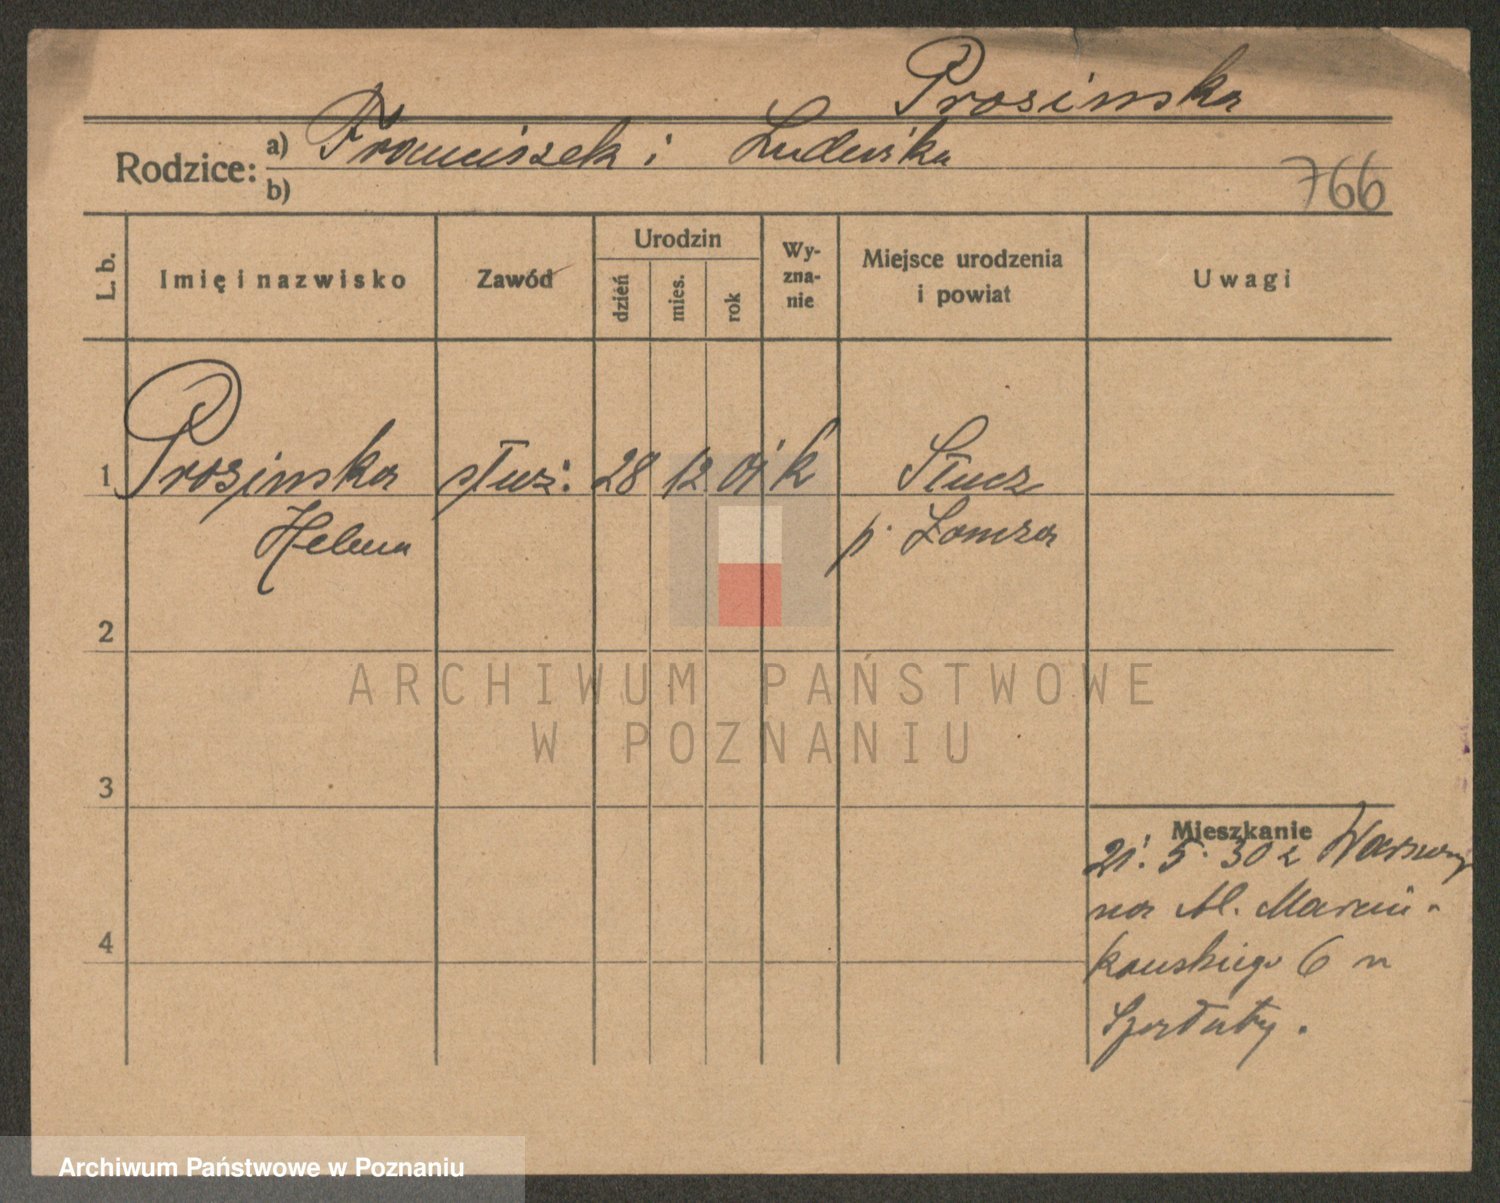 Prosinska
Rodzice: a) Franciszek i Ludwika
b)
766
L. b.
Imię i nazwisko
Zawód
Urodzin
dzień
mies.
rok
Wy-
zna-
nie
Miejsce urodzenia
i powiat
Uwagi
1 Prosinska służ. 28 12 01 k Słucz
Helena p. Łomza
2
ARCHIWUM PAŃSTWOWE
W POZNANIU
3
Mieszkanie
21. 5. 30 z Warszawy
na Al. Marcin-
kowskiego 6 u
4
Archiwum Państwowe w Poznaniu